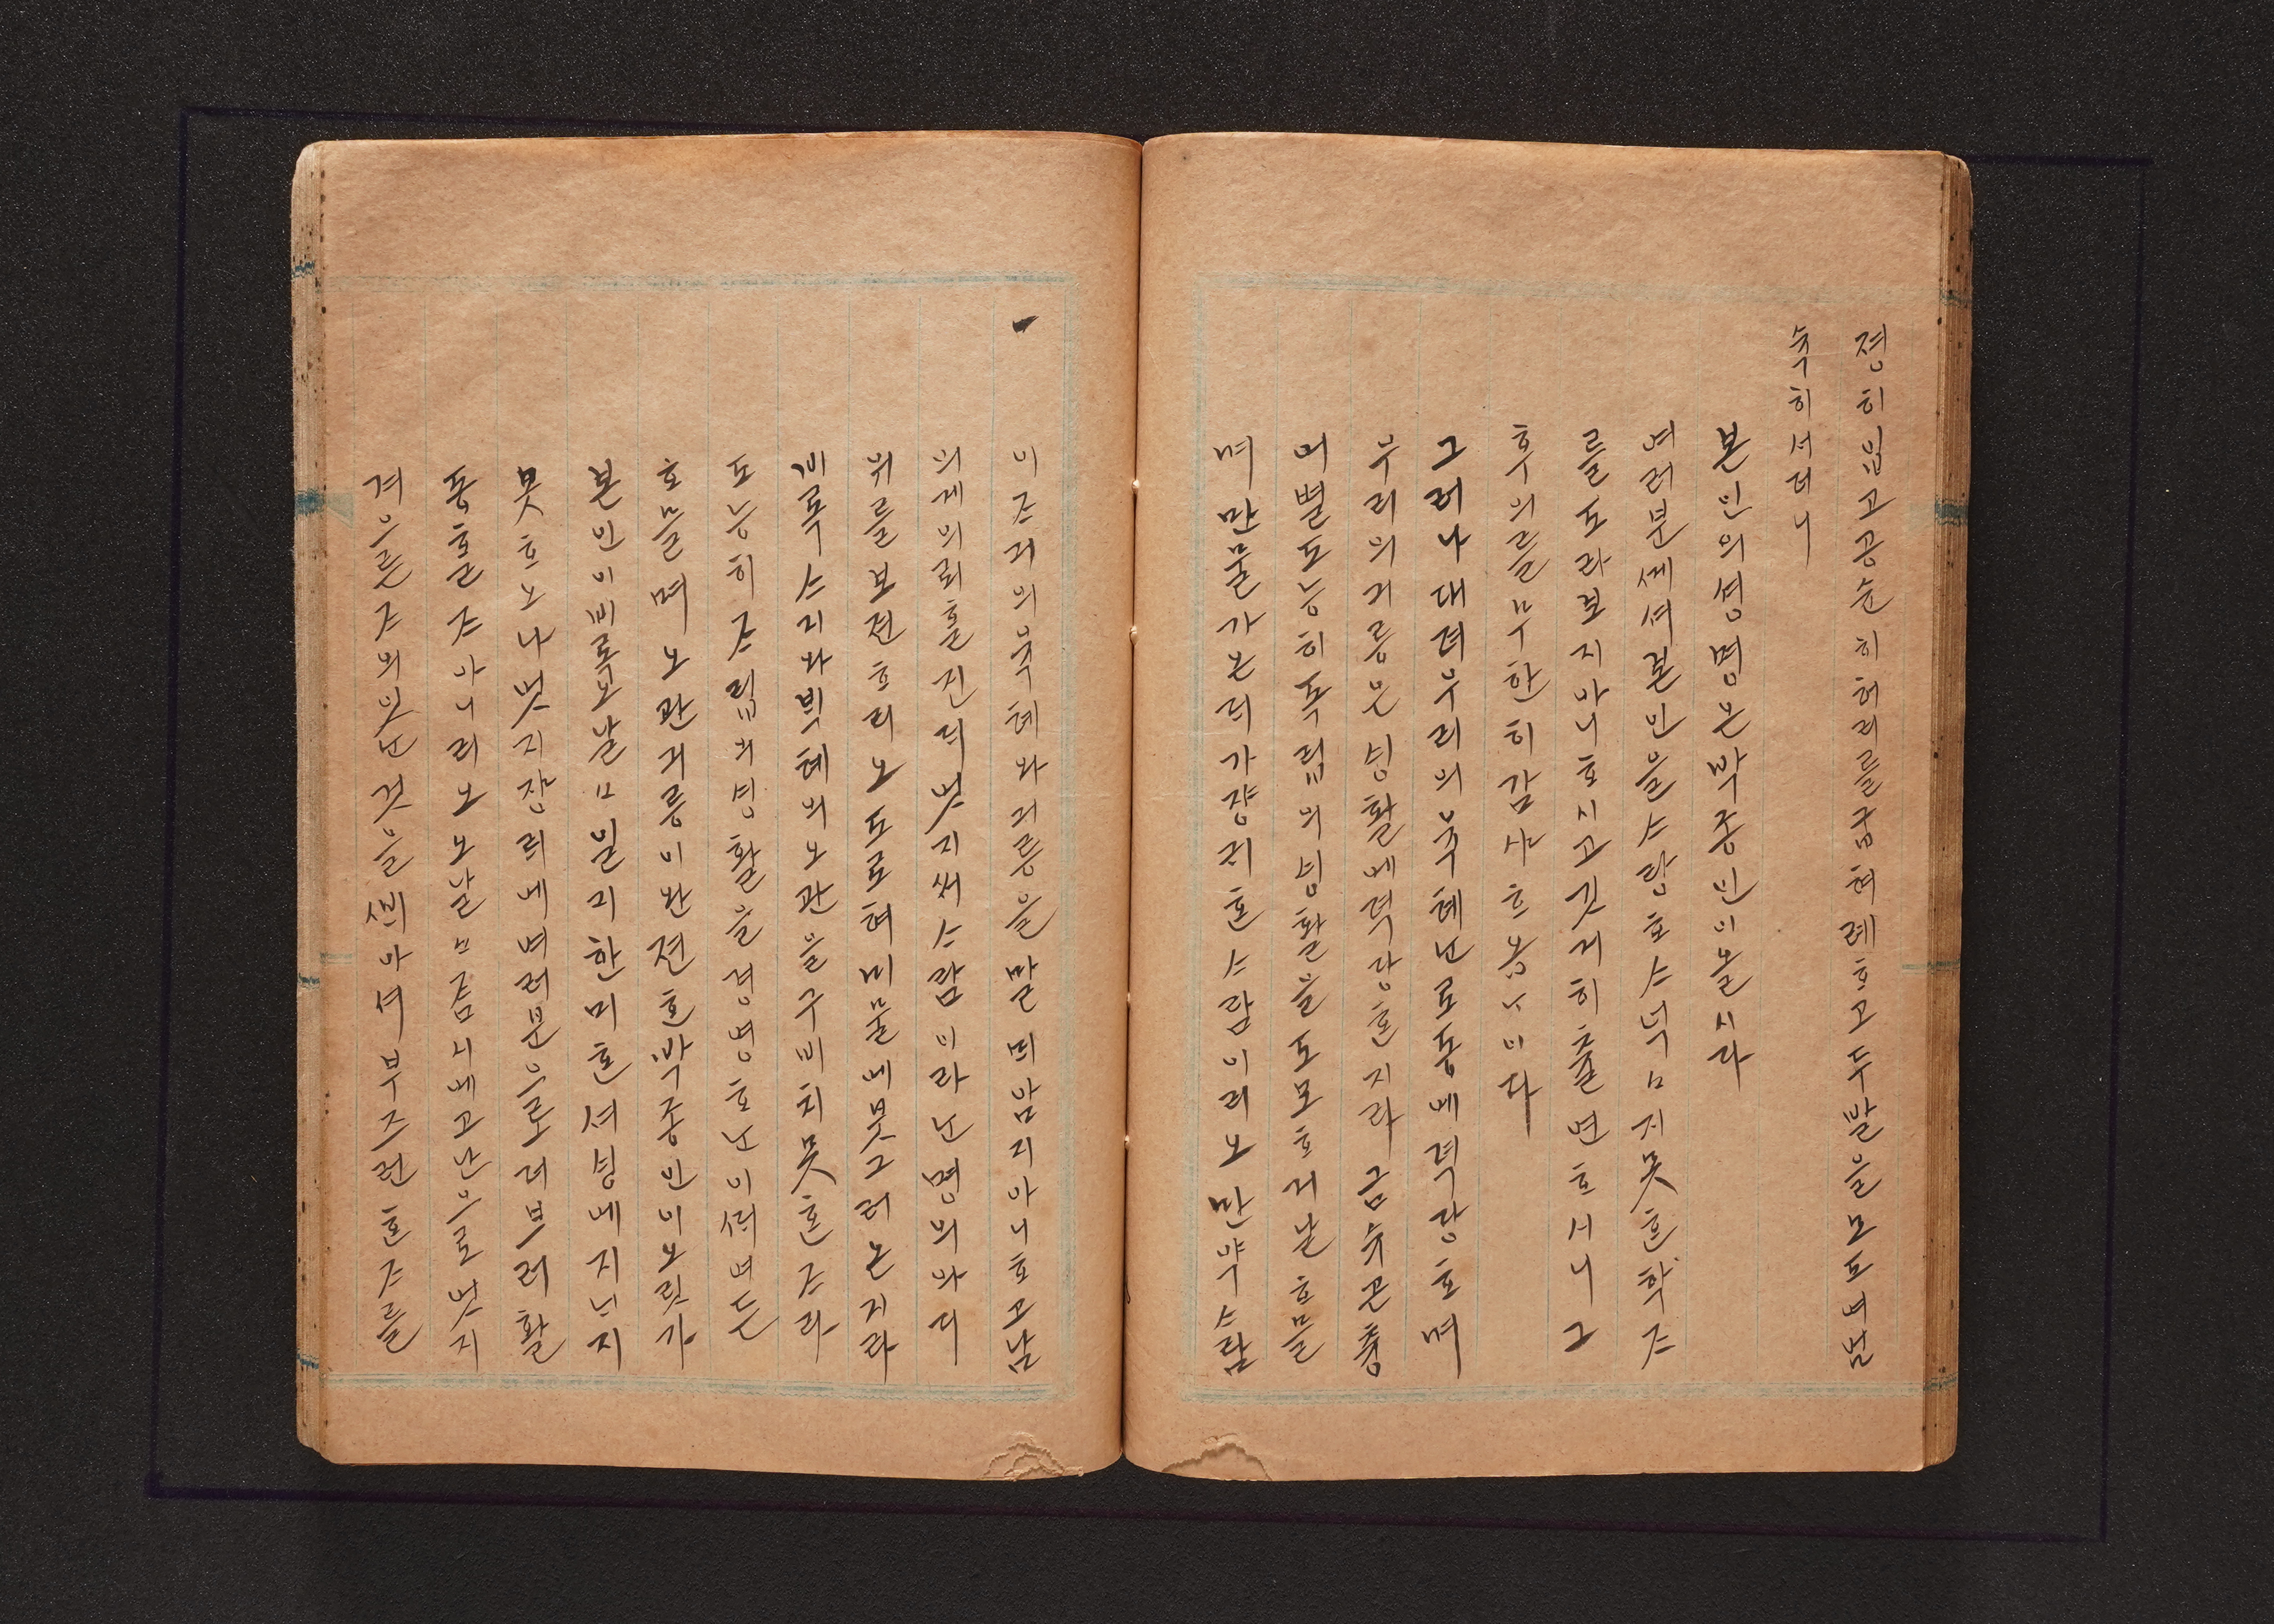 졍히입고공순히허리를굽혀례ᄒᆞ고두발을모도며넘
슉히셔더니
본인의셩명은박즁빈이올시다
여러분쎄셔본인을ᄉᆞ랑ᄒᆞᄉᆞ넉ㅁ지못ᄒᆞᆫ학ᄌᆞ
를도라보지아니ᄒᆞ시고깃거히츌변ᄒᆞ시니그
후의를무한히감샤ᄒᆞ옵ᄂᆞ이다
그러나대뎌우리의육톄ᄂᆞᆫ로동에뎍당ᄒᆞ며
우리의긔릉은ᄉᆡᆼ활에뎍당ᄒᆞᆫ지라금슈곤츙
어별도능히독립의ᄉᆡᆼ활을도모ᄒᆞ거날ᄒᆞ믈
며만물가온ᄃᆡ가쟝귀ᄒᆞᆫᄉᆞ람이리오만약ᄉᆞ람
이ᄌᆞ긔의육톄와긔릉을발ᄃᆡ암지아니ᄒᆞ고남
의게의뢰ᄒᆞᆯ진ᄃᆡ엇지써ᄉᆞ람이라ᄂᆞᆫ명의와디
위를보젼ᄒᆞ리오도로혀미물에붓그러온지라
비록ᄉᆞ지와ᄇᆡᆨ톄의오관을구비치못ᄒᆞᆫᄌᆞ라
도능히ᄌᆞ립의ᄉᆡᆼ활을경영ᄒᆞᄂᆞᆫ이ᄯᆡ여든
ᄒᆞ믈며오관긔릉이완젼ᄒᆞᆫ박즁빈이오릿가
본인이비록오날ㅁ일긔한미ᄒᆞᆫ셔ᄉᆡᆼ에지ᄂᆞ지
못ᄒᆞ오나엇지쟝ᄅᆡ에여러분으로더브러활
동ᄒᆞᆯᄌᆞ아니리오오날ㅁ즘시에고난으로엇지
겨으른ᄌᆞ의잇ᄂᆞᆫ것을ᄲᆡ아셔부즈런ᄒᆞᆫᄌᆞ를